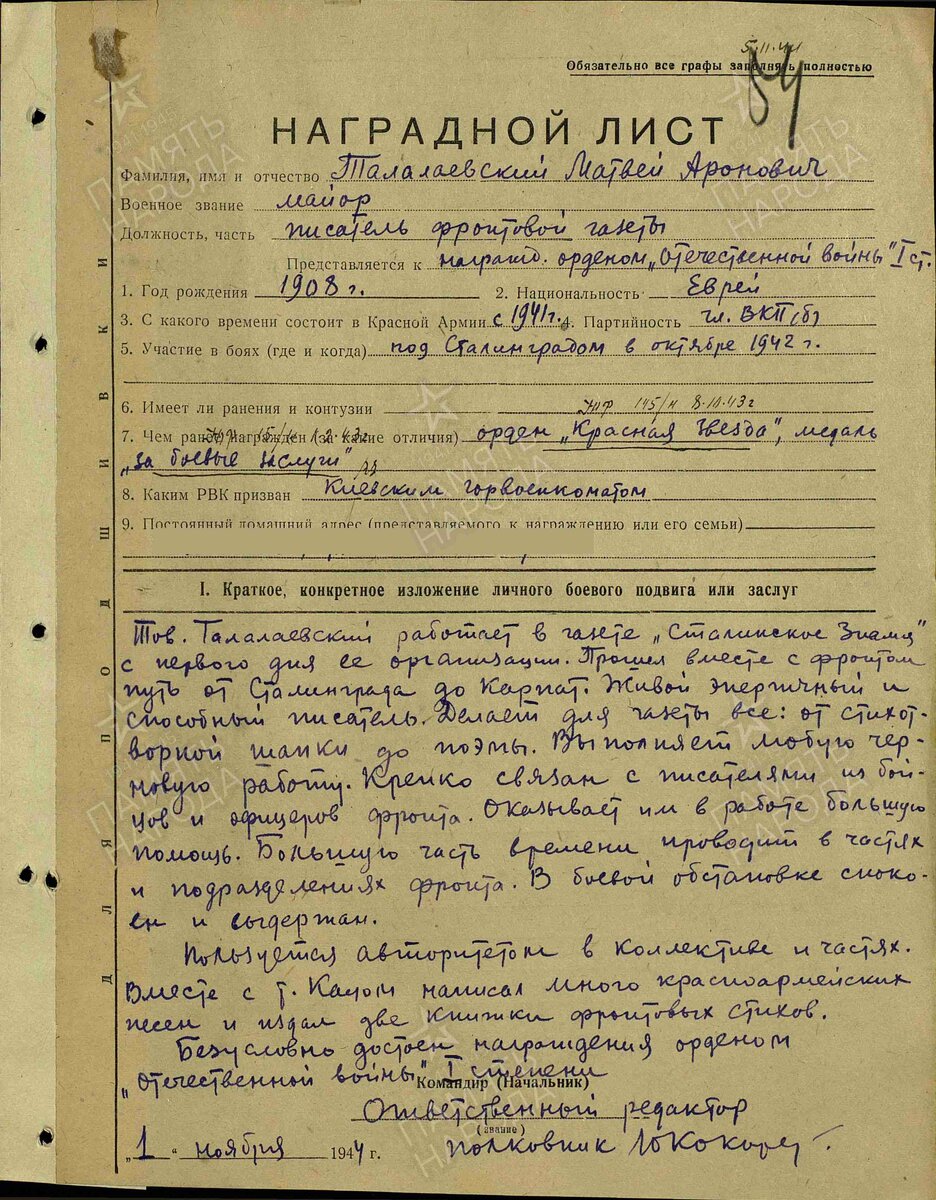 5.11.44
Обязательно все графы заполнять полностью
84
НАГРАДНОЙ ЛИСТ
Фамилия, имя и отчество Талалаевский Матвей Аронович
Военное звание майор
Должность, часть писатель фронтовой газеты
Представляется к награжд. орденом „Отечественной войны" I ст.
1. Год рождения 1908 г. 2. Национальность Еврей
3. С какого времени состоит в Красной Армии с 1941 г. 4. Партийность чл. ВКП(б)
5. Участие в боях (где и когда) под Сталинградом в октябре 1942 г.
6. Имеет ли ранения и контузии
145/н 8.10.43 г
7. Чем ранее награжден (за какие отличия) орден „Красная Звезда", медаль
„за боевые заслуги"
8. Каким РВК призван Киевским горвоенкоматом
9. Постоянный домашний адрес (представляемого к награждению или его семьи)
I. Краткое, конкретное изложение личного боевого подвига или заслуг
Тов. Талалаевский работает в газете „Сталинское Знамя"
с первого дня ее организации. Прошел вместе с фронтом
путь от Сталинграда до Карпат. Живой энергичный и
способный писатель. Делает для газеты все: от стихот-
ворной шапки до поэмы. Выполняет любую чер-
новую работу. Крепко связан с писателями из бой-
цов и офицеров фронта. Оказывает им в работе большую
помощь. Большую часть времени проводит в частях
и подразделениях фронта. В боевой обстановке споко-
ен и выдержан.
Пользуется авторитетом в коллективе и частях.
Вместе с т. Кацом написал много красноармейских
песен и издал две книжки фронтовых стихов.
Безусловно достоен награждения орденом
„Отечественной войны" I степени
Командир (Начальник)
Ответственный редактор
(звание)
полковник
„1" ноября 1944 г.
ДЛЯ ПОДШИВКИ
ПАМЯТЬ НАРОДА